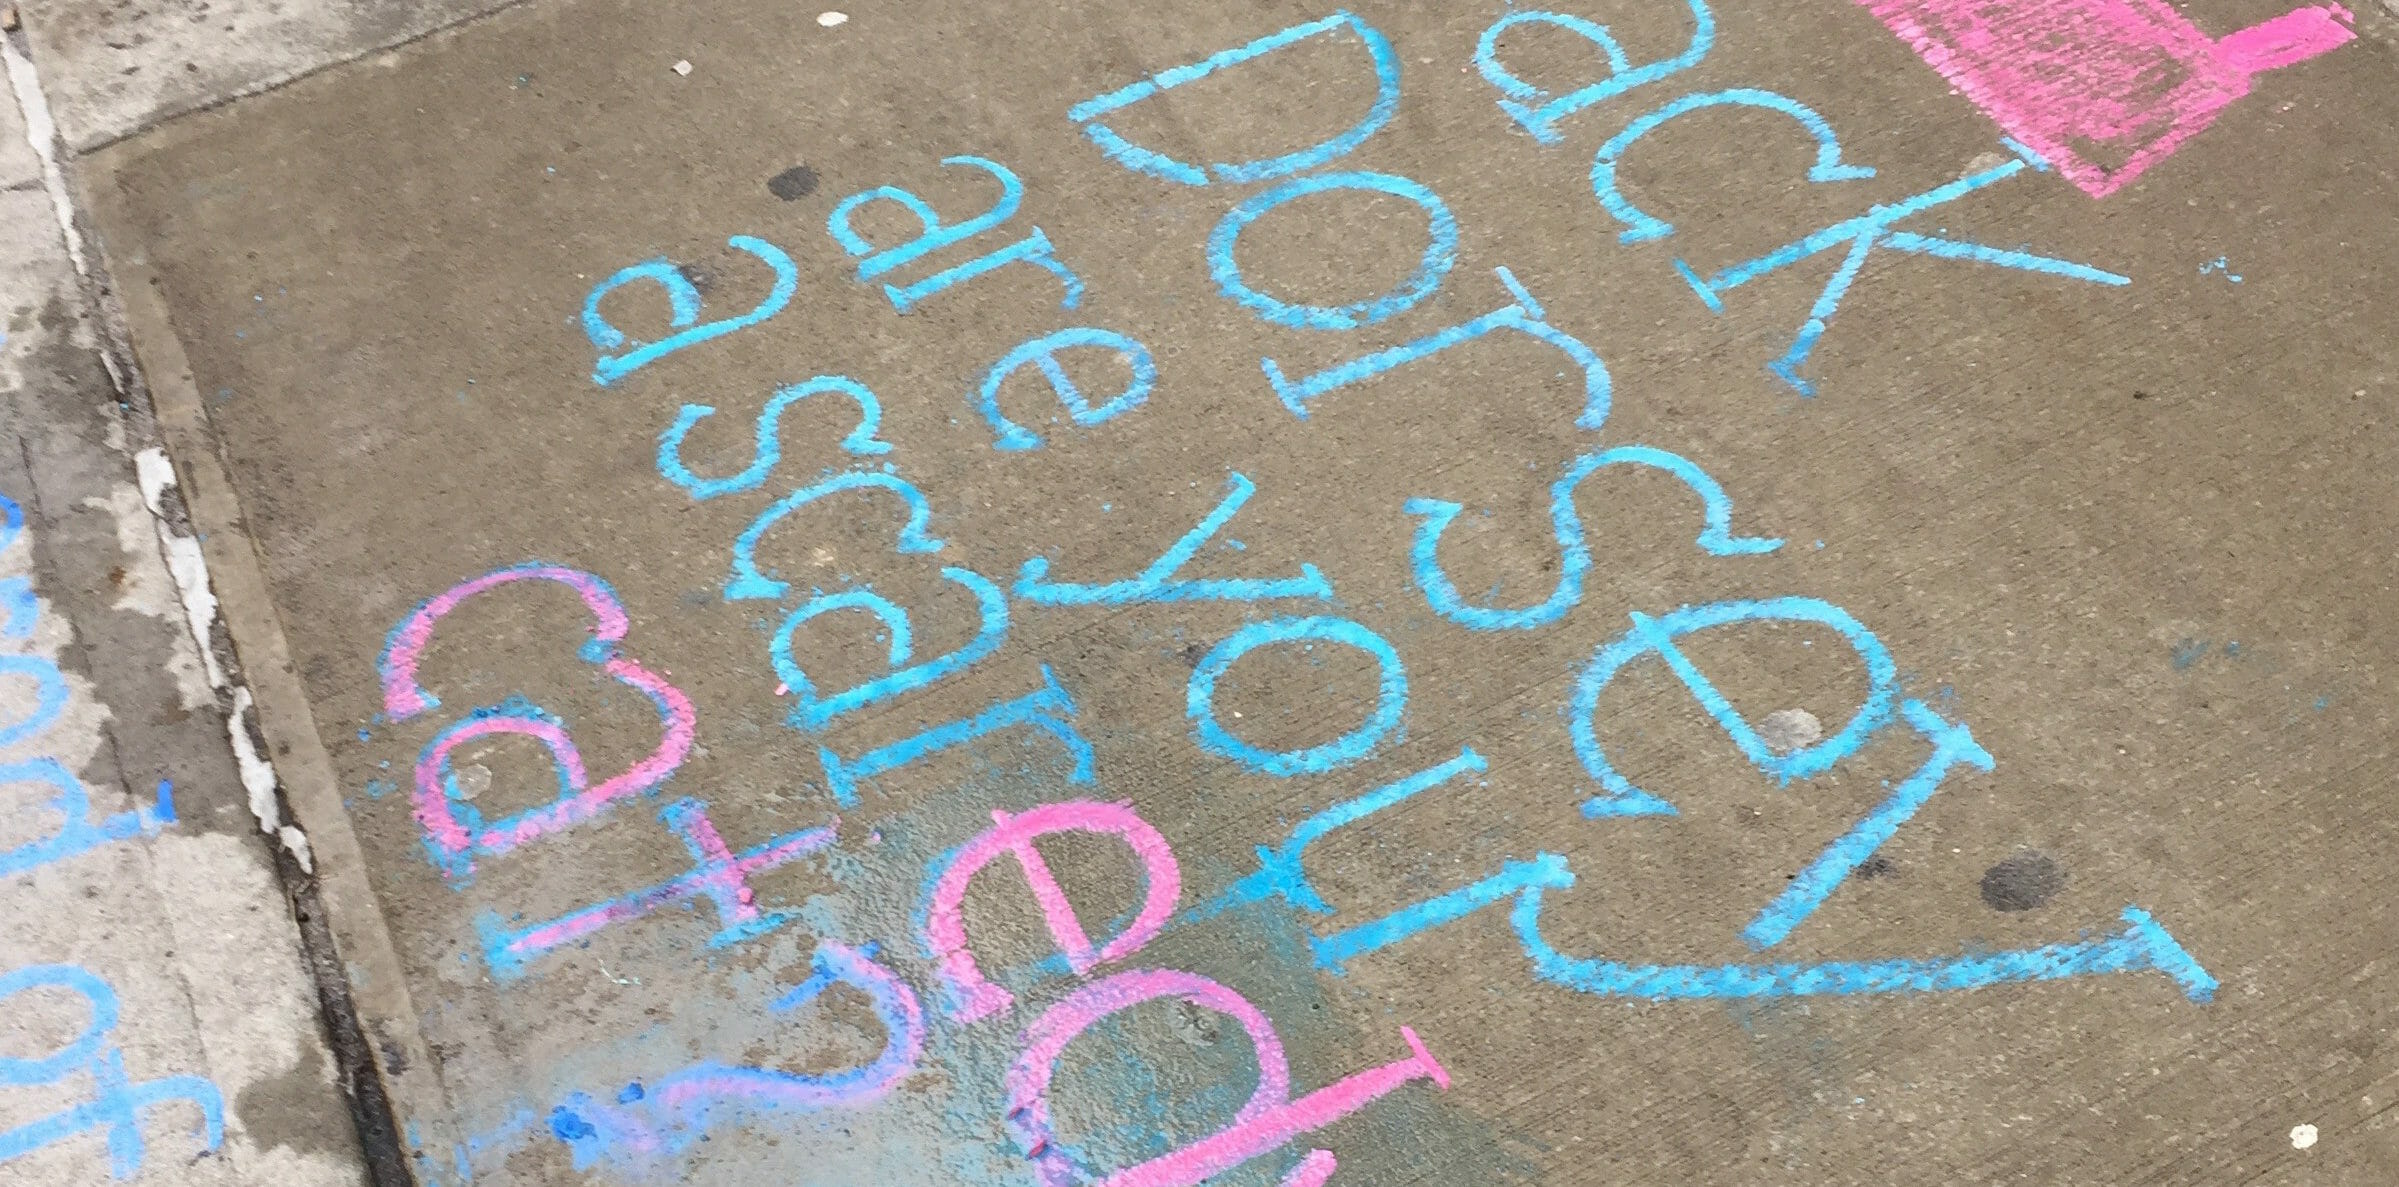 ack
Dorsey,
are you
a scared
cat?
of